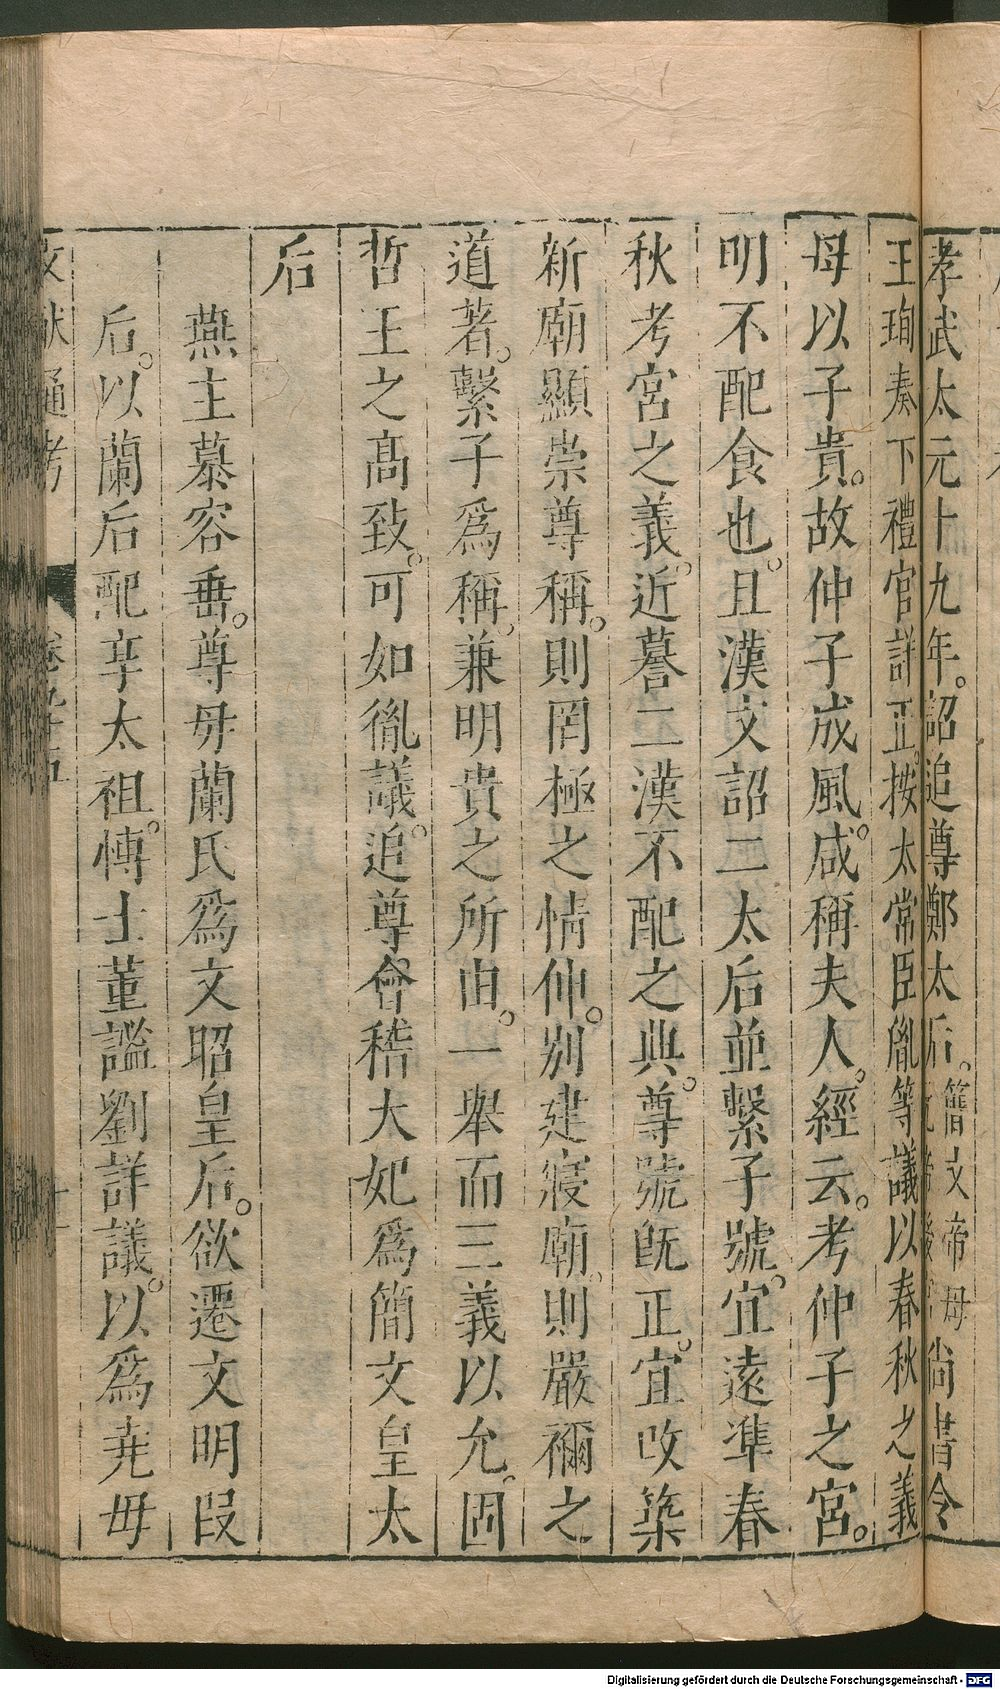 孝武太元十九年。詔追尊鄭太后。簡文帝母尚書令
王珣奏下禮官詳正。按太常臣胤等議以春秋之義
母以子貴。故仲子成風。咸稱夫人。經云。考仲子之宮。
明不配食也。且漢文詔二太后並繫子號。宜遠準春
秋考宮之義。近摹二漢不配之典。尊號旣正。宜改築
新廟顯崇尊稱。則罔極之情伸。別建寢廟。則嚴禰之
道著。繫子爲稱。兼明貴之所由。一舉而三義以允。固
哲王之高致。可如胤議。追尊會稽太妃爲簡文皇太
后
燕主慕容垂。尊母蘭氏爲文昭皇后。欲遷文明段
后。以蘭后配享太祖。愽士董謐劉詳議。以爲堯母
文獻通考
卷九十五
十一
Digitalisierung gefördert durch die Deutsche Forschungsgemeinschaft - DFG